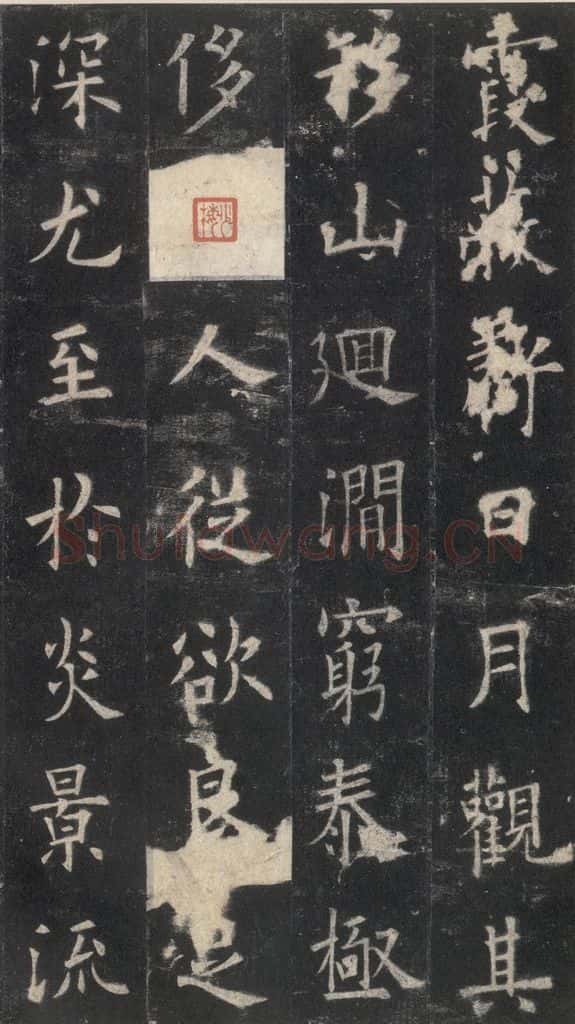 霞蔽虧日月觀其
移山迴澗窮泰極
侈人從欲良足
深尤至於炎景流
Shufawang.CN